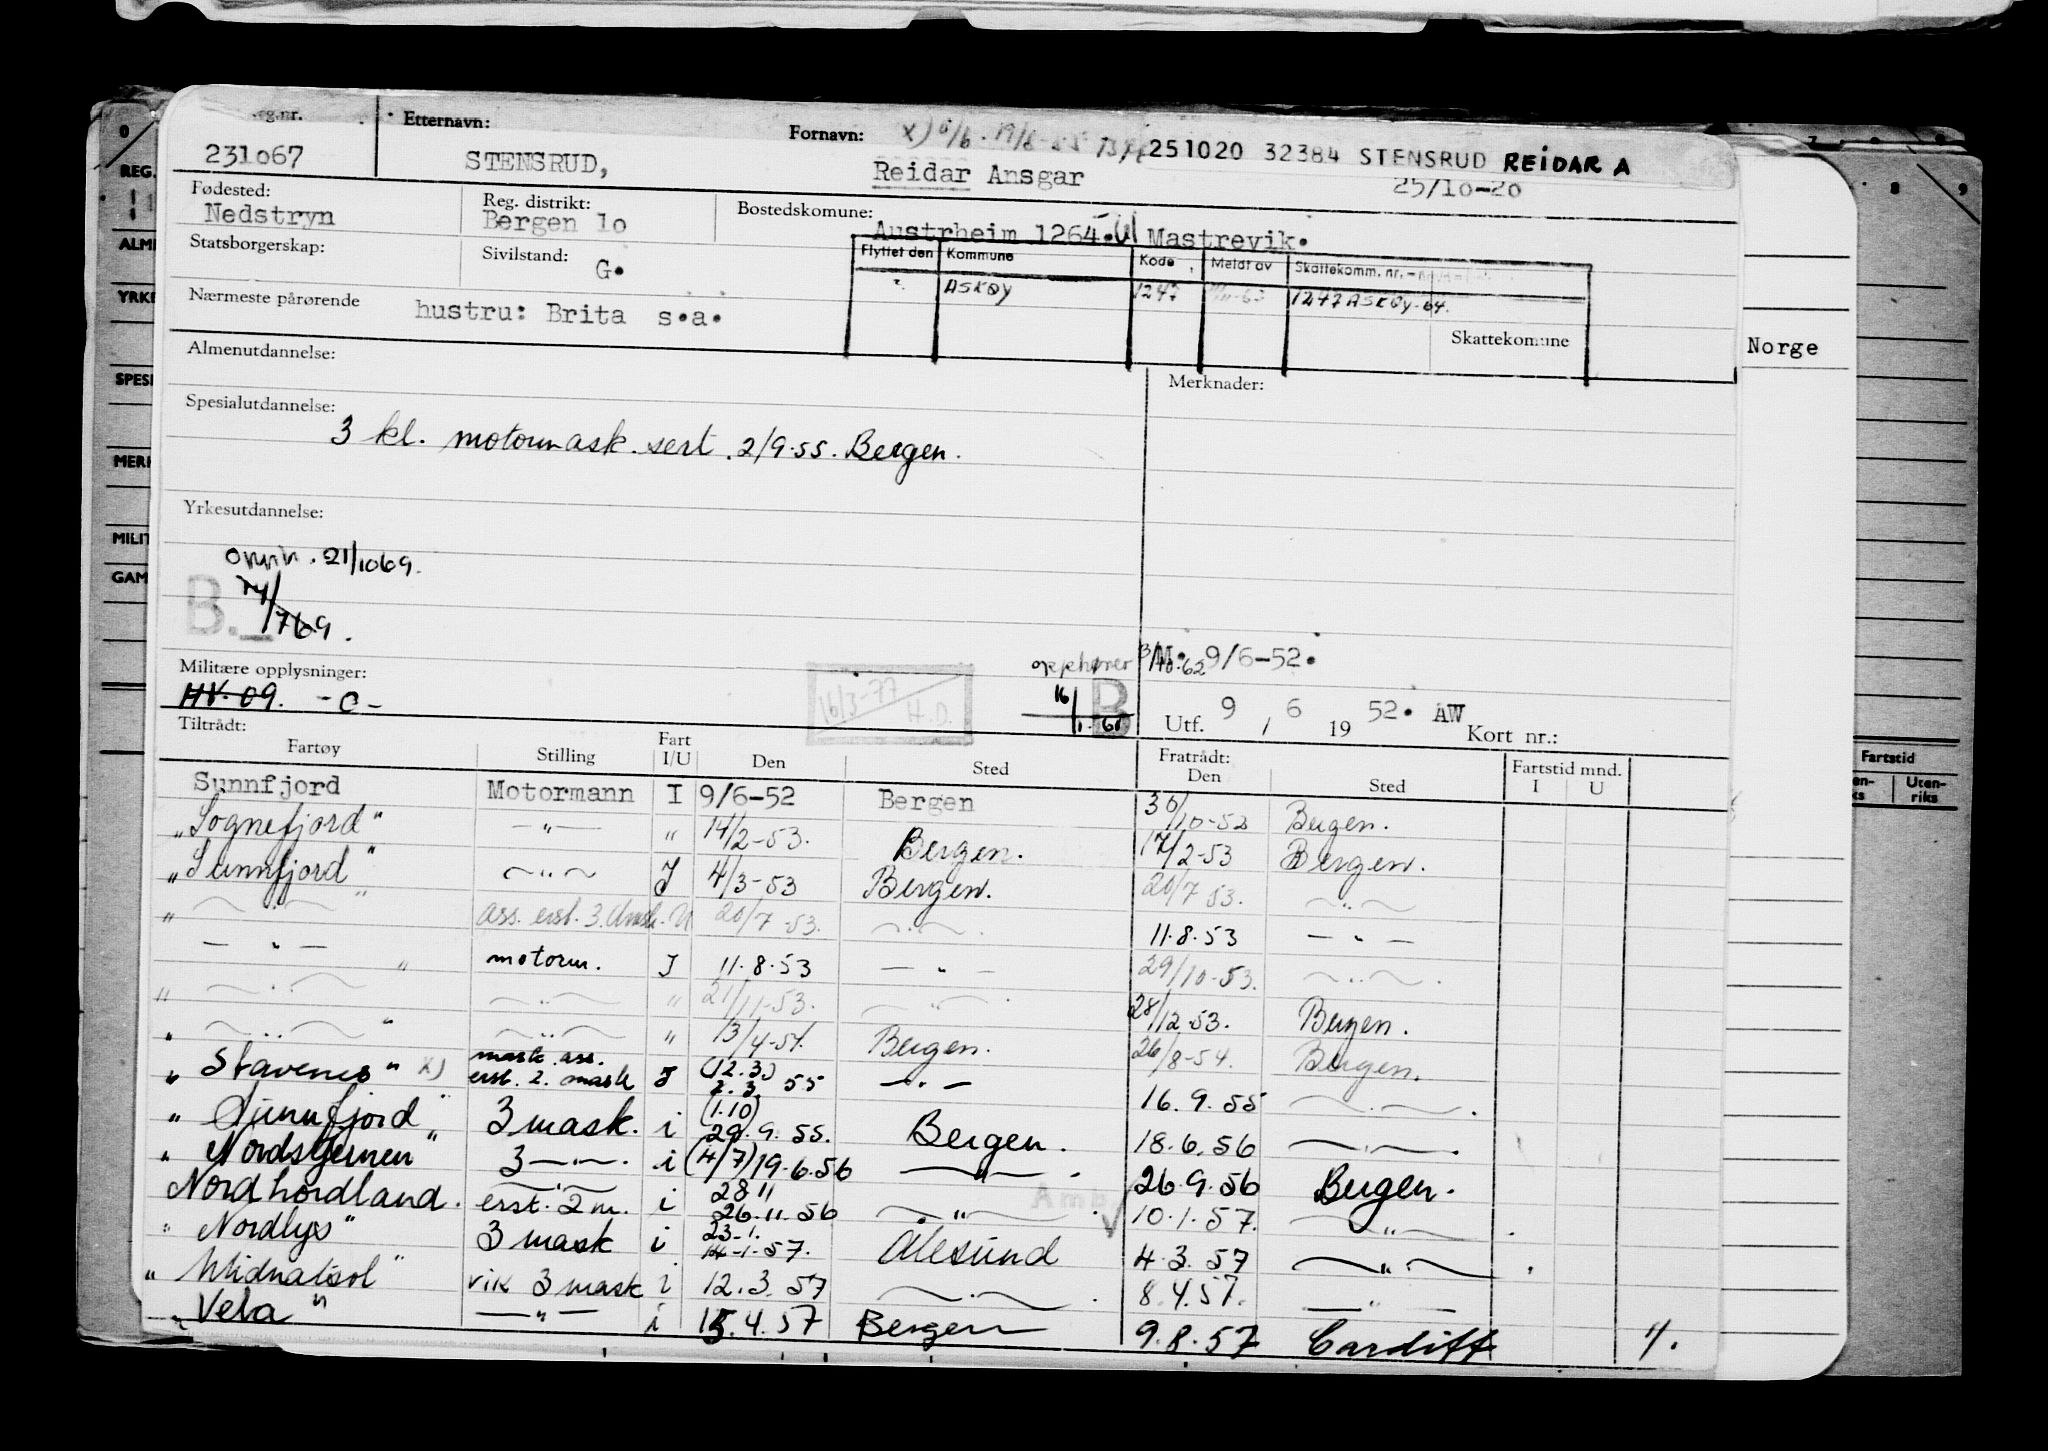 Reg.nr. Etternavn: Fornavn: 251020 32384 STENSRUD REIDAR A
231067 STENSRUD, Reidar Ansgar 25/10-20
Fødested: Reg. distrikt: Bostedskomune:
Nedstryn Bergen 10 Austrheim 1264. Mastrevik.
Statsborgerskap: Sivilstand: G.
Flyttet den Kommune Kode Meldt av Skattekomm. nr.
ASKØY 1247 1247 ASKØY-64.
Nærmeste pårørende hustru: Brita s.a.
Skattekomune
Norge
Almenutdannelse: Merknader:
Spesialutdannelse:
3 kl. motormask. sert. 2/9-55. Bergen.
Yrkesutdannelse:
omm. 21/10 69.
B.
Militære opplysninger: opphører M. 9/6-52.
HV. 09. -0- 16/3-77 H.D. 16/1-61 B Utf. 9 / 6 19 52. AW Kort nr.:
Tiltrådt: Fratrådt: Fartstid mnd.
Fartøy Stilling Fart I/U Den Sted Den Sted I U
Sunnfjord Motormann I 9/6-52 Bergen 30/10-52 Bergen.
"Sognefjord" —"— " 14/2-53. Bergen. 17/2-53 Bergen.
"Sunnfjord" —"— I 4/3-53 Bergen. 20/7 53. —"—
" —"— " ass. erst. 3. mask. U 20/7-53. —"— 11.8.53 —"—
—"— " motorm. I 11.8.53 —"— 29/10-53. —"—
" —"— —"— " 21/11-53. —"— 28/12-53. Bergen.
" —"— " —"— " 13/4-54. Bergen. 26/8-54. Bergen.
"Stavenes" x) mask. ass. erst. 2. mask I (12.3) 2.3. 55 —"— 16.9.55 —"—
"Sunnfjord" 3 mask. i (1.10) 29.9.55. Bergen. 18.6.56 —"—
"Nordstjernen" 3 —"— i (4/7) 19.6.56 —"— 26.9.56 Bergen.
Nordhordland. erst. 2 m. i 28 11 26.11.56 —"— 10.1.57. —"—
"Nordlys" 3 mask i 23-1. 14-1-57. Ålesund 4.3.57 —"—
"Midnatsol" vik 3 mask i 12.3.57 —"— 8.4.57. —"—
"Vela" —"— i 15.4.57 Bergen 9.8.57 Cardiff
REG.
ALM
YRK
SPES
MERK
MILIT
GAM
Fartstid
Uten-riks